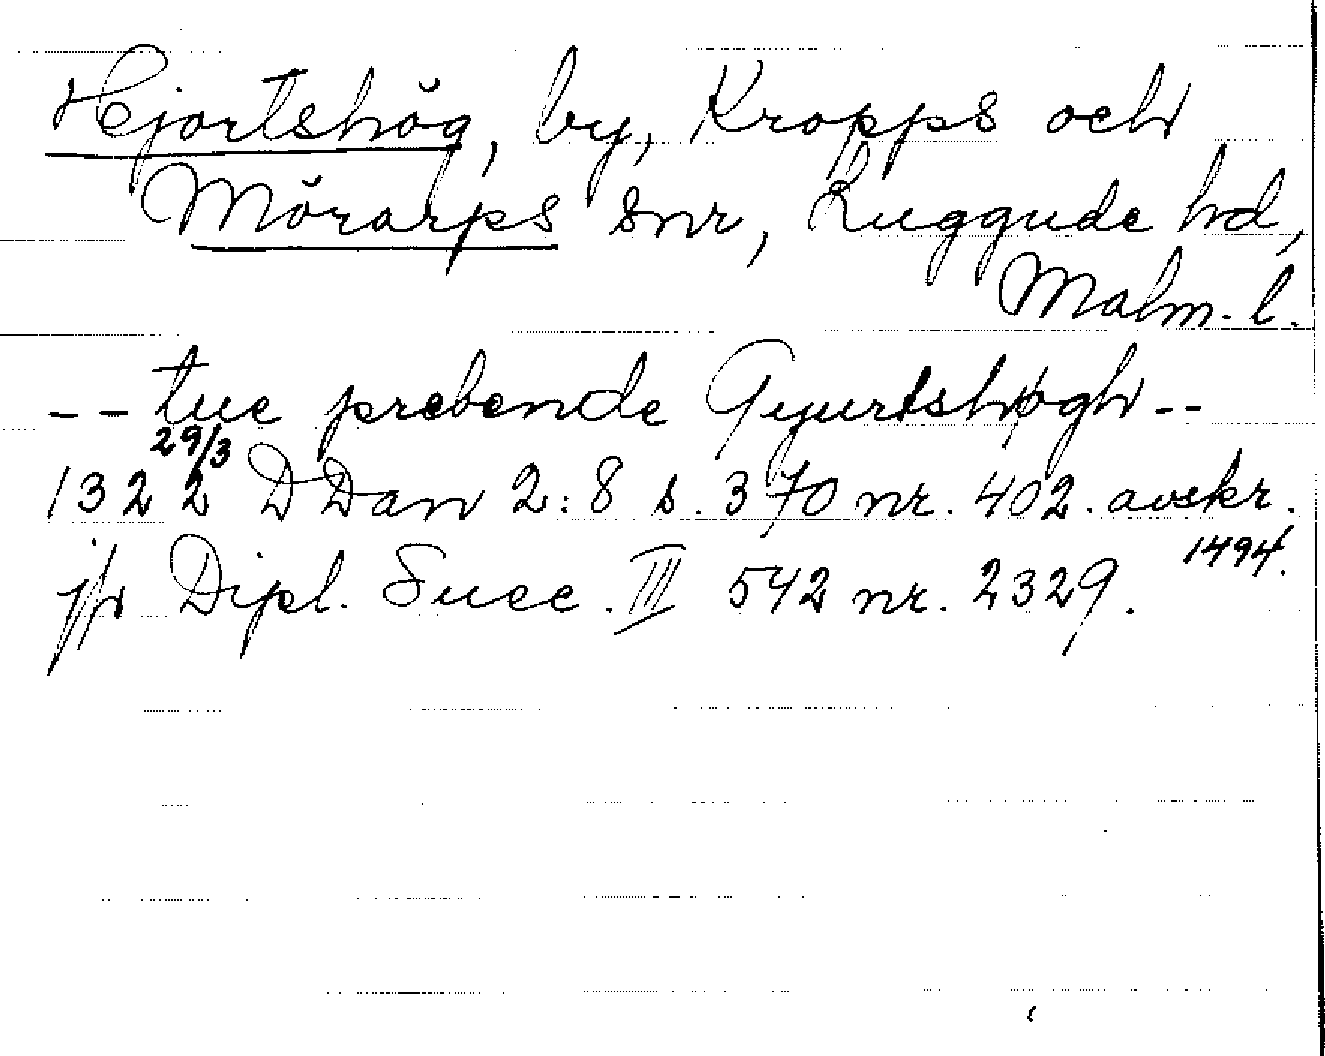 Hjortshög, by, Kropps och
Mörarps snr, Luggude hd,
Malm. l.
-- tue prebende Gyurtshøgh --
29/3
1322 DDan 2:8 s. 370 nr. 402. avskr.
1494.
jfr Dipl. Suec. III 542 nr. 2329.